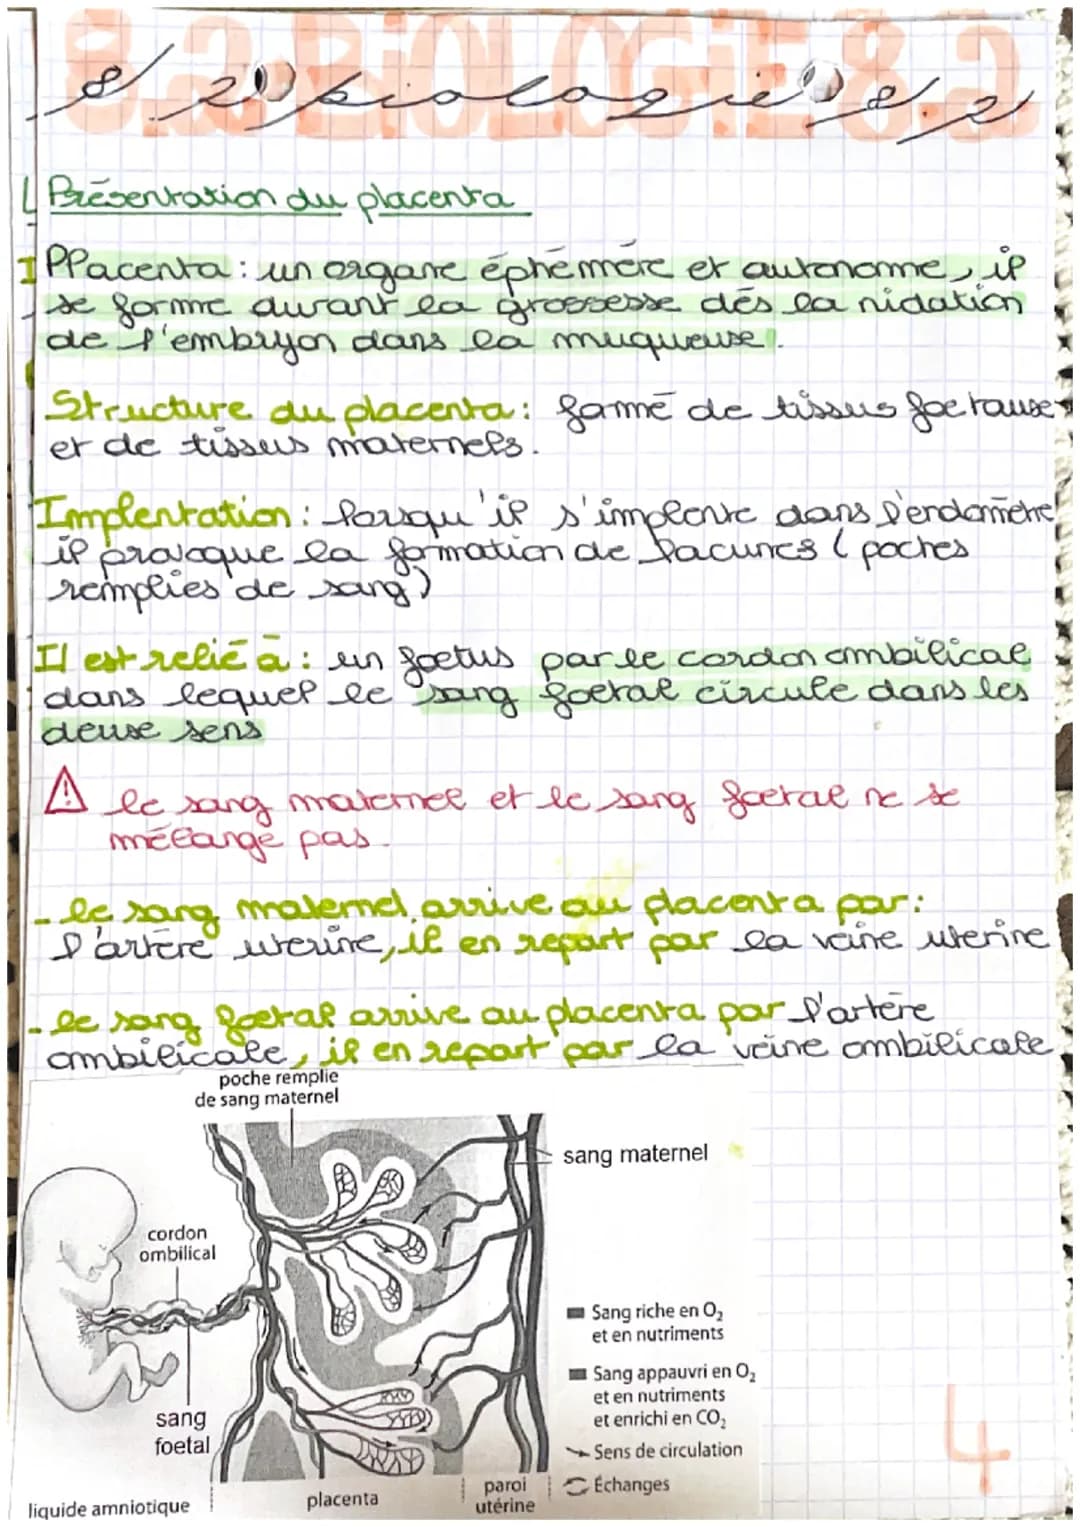 8.2 BiOLOGiE 8.2
8.2 biologie 8.2
Présentation du placenta
PPacenta : un organe éphémère et autonome, il
se forme durant la grossesse dés la nidation
de l'embryon dans la muqueuse.
Structure du placenta : formé de tissus foetause
et de tissus maternels.
Implentation : lorsqu'il s'implante dans l'endomètre
il provoque la formation de lacunes ( poches
remplies de sang)
Il est relié à : un foetus par le cordon ombilical
dans lequel le sang foetal circule dans les
deuse sens
⚠ le sang maternel et le sang foetal ne se
mélange pas.
- le sang maternel arrive au placenta par :
l'artère uterine, il en repart par la veine uterine
- le sang foetal arrive au placenta par l'artère
ombilicale, il en repart par la veine ombilicale
poche remplie
de sang maternel
sang maternel
cordon
ombilical
Sang riche en O₂
et en nutriments
Sang appauvri en O₂
et en nutriments
et enrichi en CO₂
sang
foetal
Sens de circulation
Échanges
4
liquide amniotique
placenta
paroi
utérine